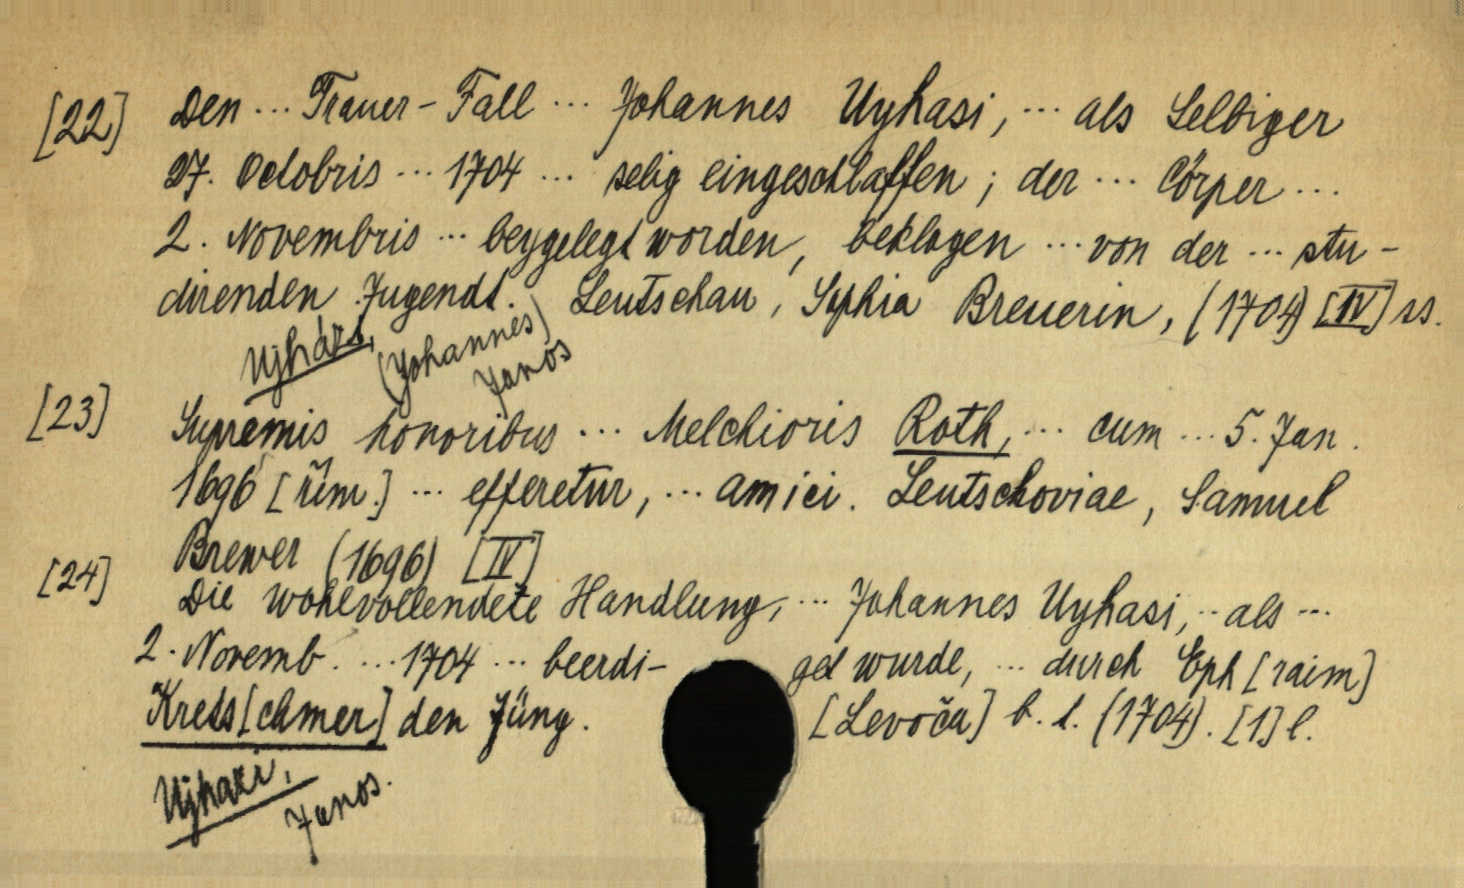 [22] Den ... Trauer-Fall ... Johannes Uyhasi, ... als Selbiger
27. Octobris ... 1704 ... selig eingeschlaffen; der ... Cörper ...
2. Novembris ... beygelegt worden, beklagen ... von der ... stu-
direnden Jugendt. Leutschau, Sophia Breuerin, (1704) [IV] ss.
Ujházi, (Johannes)
Janos
[23] Supremis honoribus ... Melchioris Roth, ... cum ... 5. Jan.
1696 ... efferetur, ... amici. Leutschoviae, Samuel
Brewer (1696) [IV]
[24] Die wohlvollendete Handlung, ... Johannes Uyhasi, .. als ...
2. Novemb. ... 1704 ... beerdi- get wurde, ... durch Eph[raim]
Krets[chmer] den Jüng. [Levoča] b. t. (1704). [1] l.
Ujhazi,
Janos.